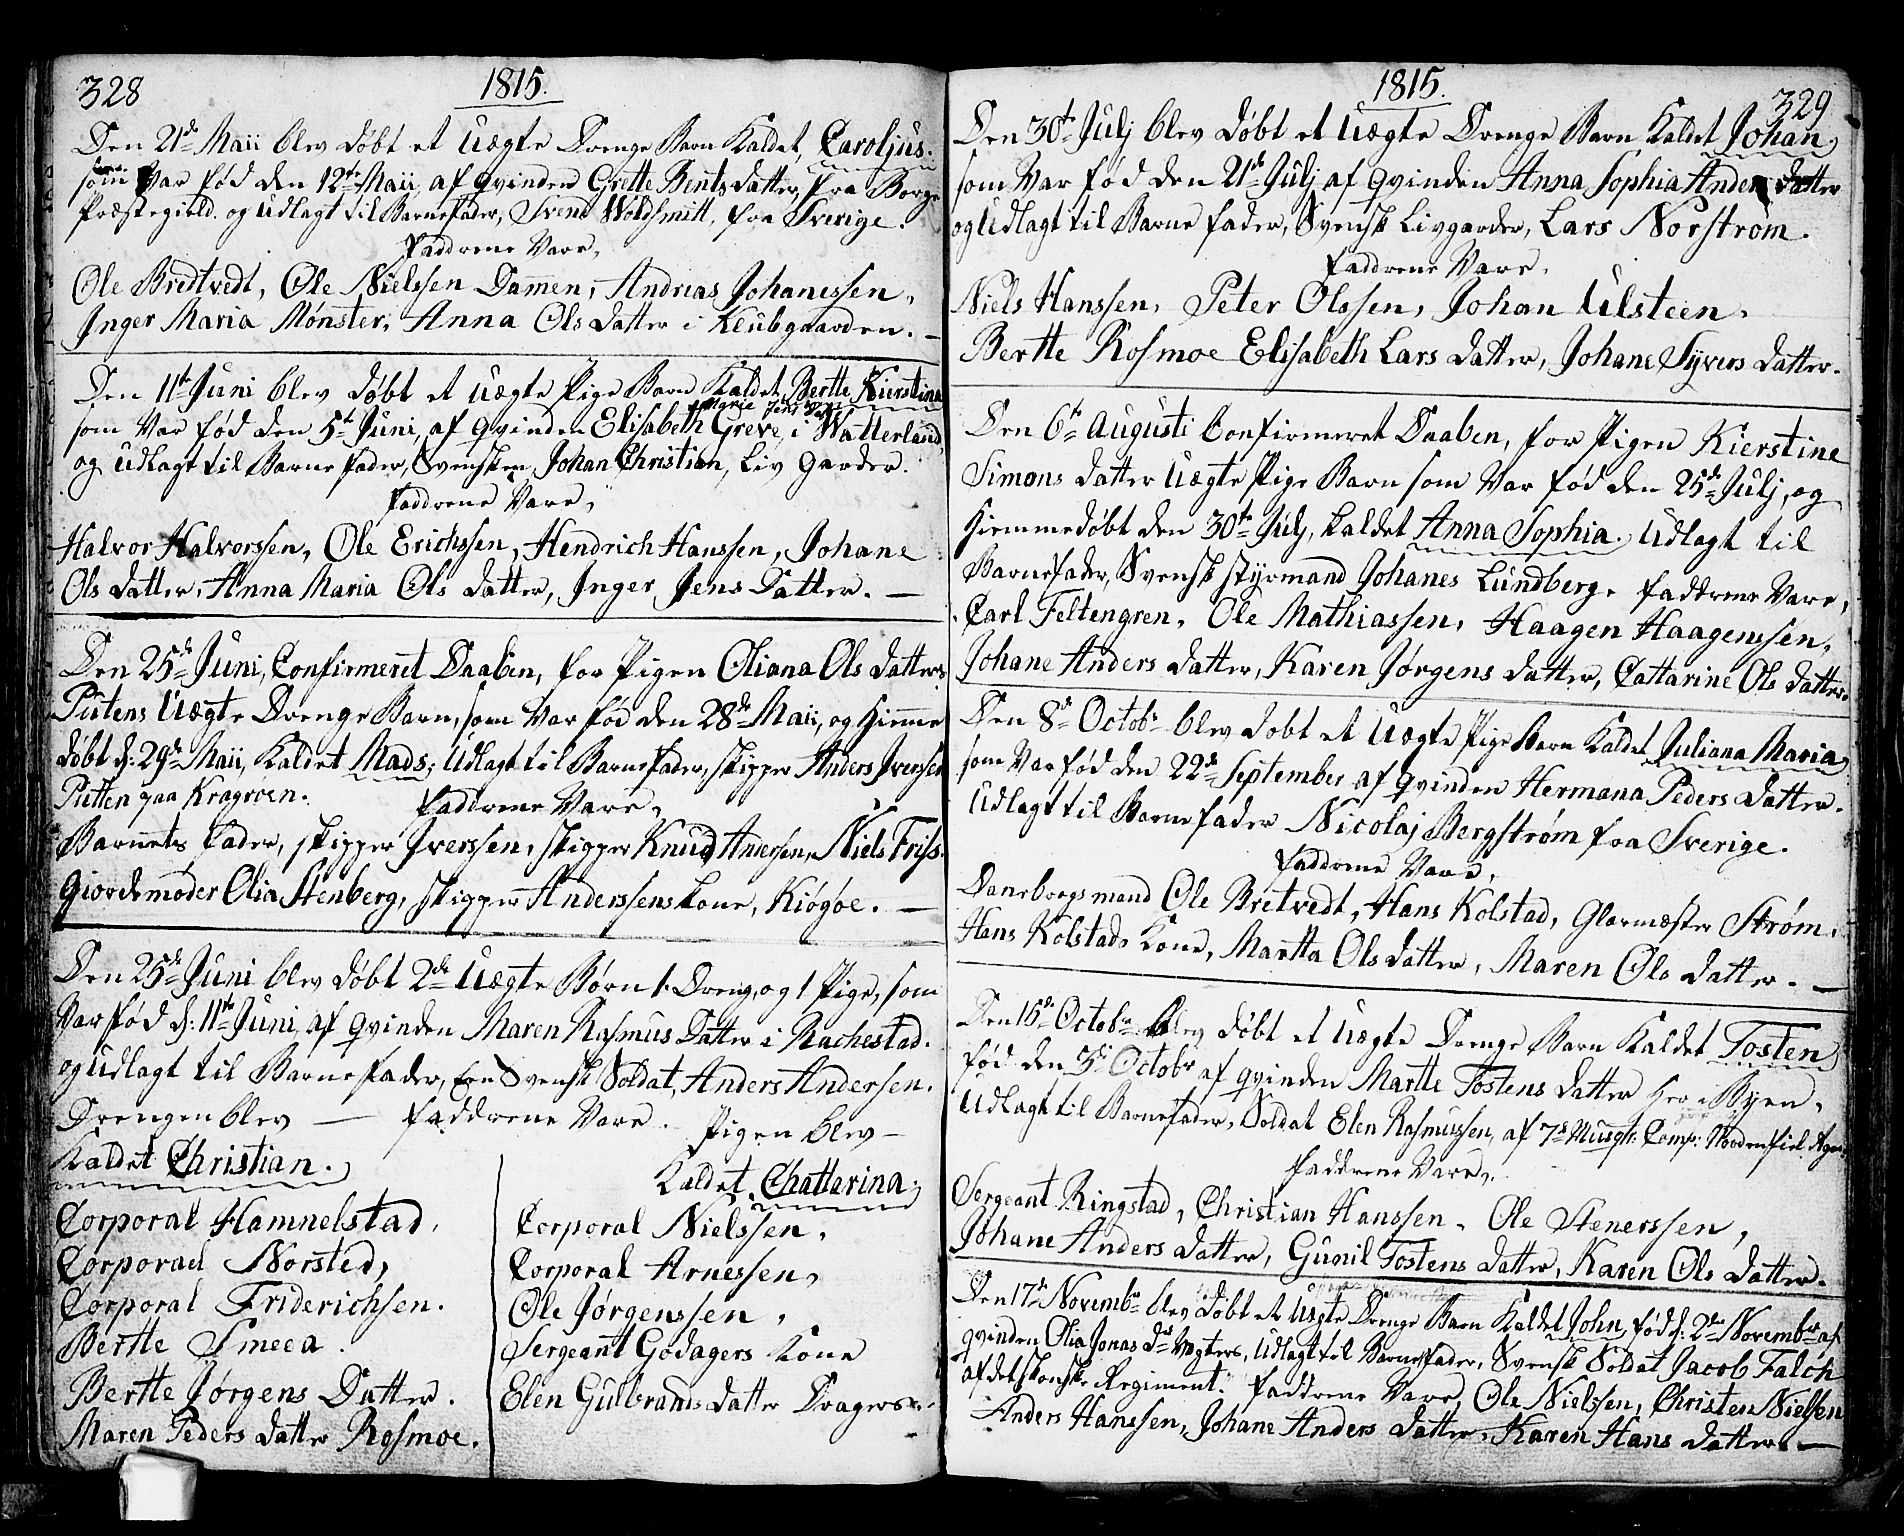 328
1815.
Den 21de Maii blev døbt et Uægte Drenge Barn Kaldet, Caroljus.
som Var fød den 12te Maii, af qvinden Grette Bents datter, fra Borge
Præstegield. og Udlagt til Barnefader, Svend Woldsmitt, fra Sverige.
Faddrene Vare,
Ole Bredtvedt, Ole Nielssen Damen, Andrias Johanessen,
Inger Maria Mønster, Anna Ols datter i Klubgaarden. —
Den 11te Juni blev døbt et Uægte Pige Barn Kaldet Bertte Kierstine
Marie Jens
som Var fød den 5te Juni, af qvinden Elisabeth Greve, i Watterland,
og Udlagt til Barne fader, Svensken Johan Christian, Liv Garder.
Faddrene Vare,
Halvor Halvorssen, Ole Erichssen, Hendrich Hanssen, Johane
Ols datter, Anna Maria Ols datter, Inger Jens Datter. —
Den 25de Juni, Confirmeret Daaben, for Pigen Oliana Ols datters
Putens Uægte Drenge Barn, som Var fød den 28de Maii, og Hiemme
døbt d: 29de Maii, Kaldet Mads, Udlagt til Barnefader, skipper Anders Iversen
Putten paa Kragroen. Faddrene Vare,
Barnets fader, skipper Iverssen, skipper Knud Andersen, Niels Friss.
Giordemoder Olia Stenberg, skipper Anderssens kone, Kiøgøe. —
Den 25de Juni blev døbt 2de Uægte Børn 1. Dreng, og 1 Pige, som
Var fød d: 11te Juni, af qvinden Maren Rasmus Datter i Rachestad.
og Udlagt til Barnefader, Een Svensk Soldat, Anders Andersen.
Drengen blev — Faddrene Vare. Pigen blev —
Kaldet Christian.
Kaldet, Chattarina,
Corporal Hamnelstad,
Corporal Norsted,
Corporal Friderichsen.
Bertte Smeea.
Bertte Jørgens Datter.
Maren Peders datter Rosmoe.
Corporal Nielssen,
Corporal Arnessen,
Ole Jørgenssen,
Sergeant Godagers Kone
Elen Gulbrands datter
329
1815.
Den 30te Julj blev døbt et Uægte Drenge Barn Kaldet Johan,
som Var fød den 21de Julj af qvinden Anna Sophia Anders datter
og Udlagt til Barne fader, Svensk Livgarder, Lars Norstrøm.
Faddrene Vare,
Niels Hanssen, Peter Olssen, Johan Ulsteen,
Bertte Rosmoe Elisabeth Lars datter, Johane Syvers datter.
Den 6te Augusti Confirmeret Daaben, for Pigen Kierstine
Simons datter Uægte Pige Barn som Var fød den 25de Julj, og
Hiemmedøbt den 30te Julj, kaldet Anna Sophia. Udlagt til
Barnefader, Svensk styrmand Johanes Lundberg. Faddrene Vare,
Carl Feltengren, Ole Mathiassen, Haagen Haagenssen,
Johane Anders datter, Karen Jørgens datter, Cattarine Ols datter.
Den 8de Octobr blev døbt et Uægte Pige Barn Kaldet Juliana Maria,
som Var fød den 22de September af qvinden Hermana Peders datter.
Udlagt til Barnefader Nicolaj Bergstrøm fra Sverige.
Faddrene Vare,
Daneborgsmand Ole Bretvedt, Hans Kolstad, Glarmæster Strøm,
Hans Kolstads Kone, Martta Ols datter, Maren Ols datter. —
Den 15de Octobr blev døbt et Uægte Drenge Barn Kaldet Tosten
fød den 3de Octobr af qvinden Martte Tostens datter Her i Byen,
Udlagt til Barnefader, Soldat Elen Rasmussen, af 7de Musqt: Comp:
Faddrene Vare,
Sergeant Ringstad, Christian Hanssen, Ole Stenerssen,
Johane Anders datter, Gunil Tostens datter, Karen Ols datter.
Den 17de Novembr blev døbt et Uægte Drenge Barn Kaldet John, fød d: 2de Novembr af
qvinden Olia Jonas dr Vægters, Udlagt til Barnefader, Svensk Soldat Jacob Falch
af det skonske Regiment. Faddrene Vare, Ole Nielssen, Christen Nielsen
Anders Hanssen, Johane Anders datter, Karen Hans datter. —